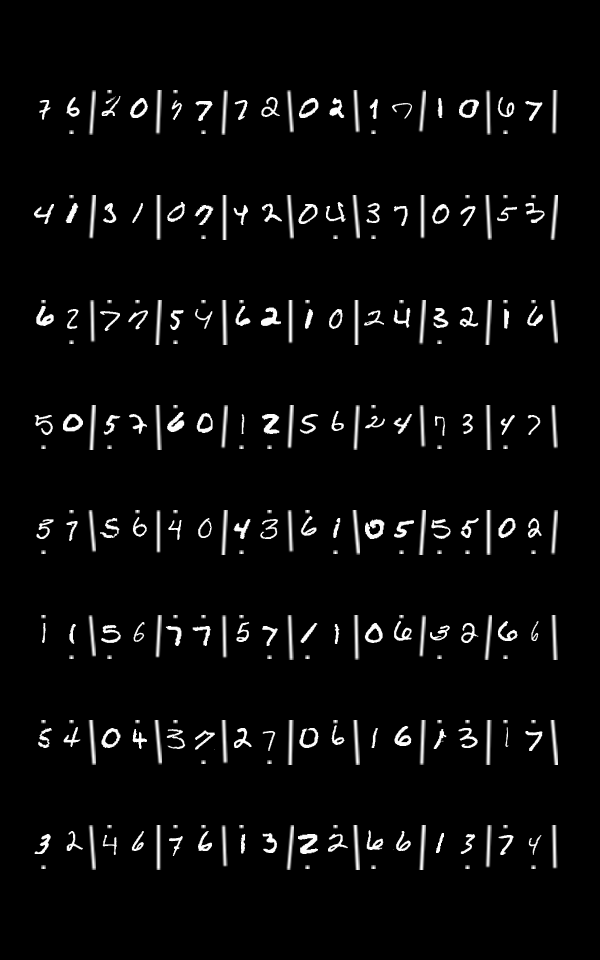 7 6 | 2 0 | 7 7 | 7 2 | 0 2 | 1 7 | 1 0 | 6 7 |
4 1 | 3 1 | 0 7 | 4 2 | 0 4 | 3 7 | 0 7 | 5 3 |
6 2 | 7 7 | 5 4 | 6 2 | 1 0 | 2 4 | 3 2 | 1 6 |
5 0 | 5 7 | 6 0 | 1 2 | 5 6 | 2 4 | 7 3 | 4 7 |
3 7 | 5 6 | 4 0 | 4 3 | 6 1 | 0 5 | 5 5 | 0 2 |
1 1 | 5 6 | 7 7 | 5 7 | 1 1 | 0 6 | 3 2 | 6 6 |
5 4 | 0 4 | 3 7 | 2 7 | 0 6 | 1 6 | 1 3 | 1 7 |
3 2 | 4 6 | 7 6 | 1 3 | 2 2 | 6 6 | 1 3 | 7 4 |